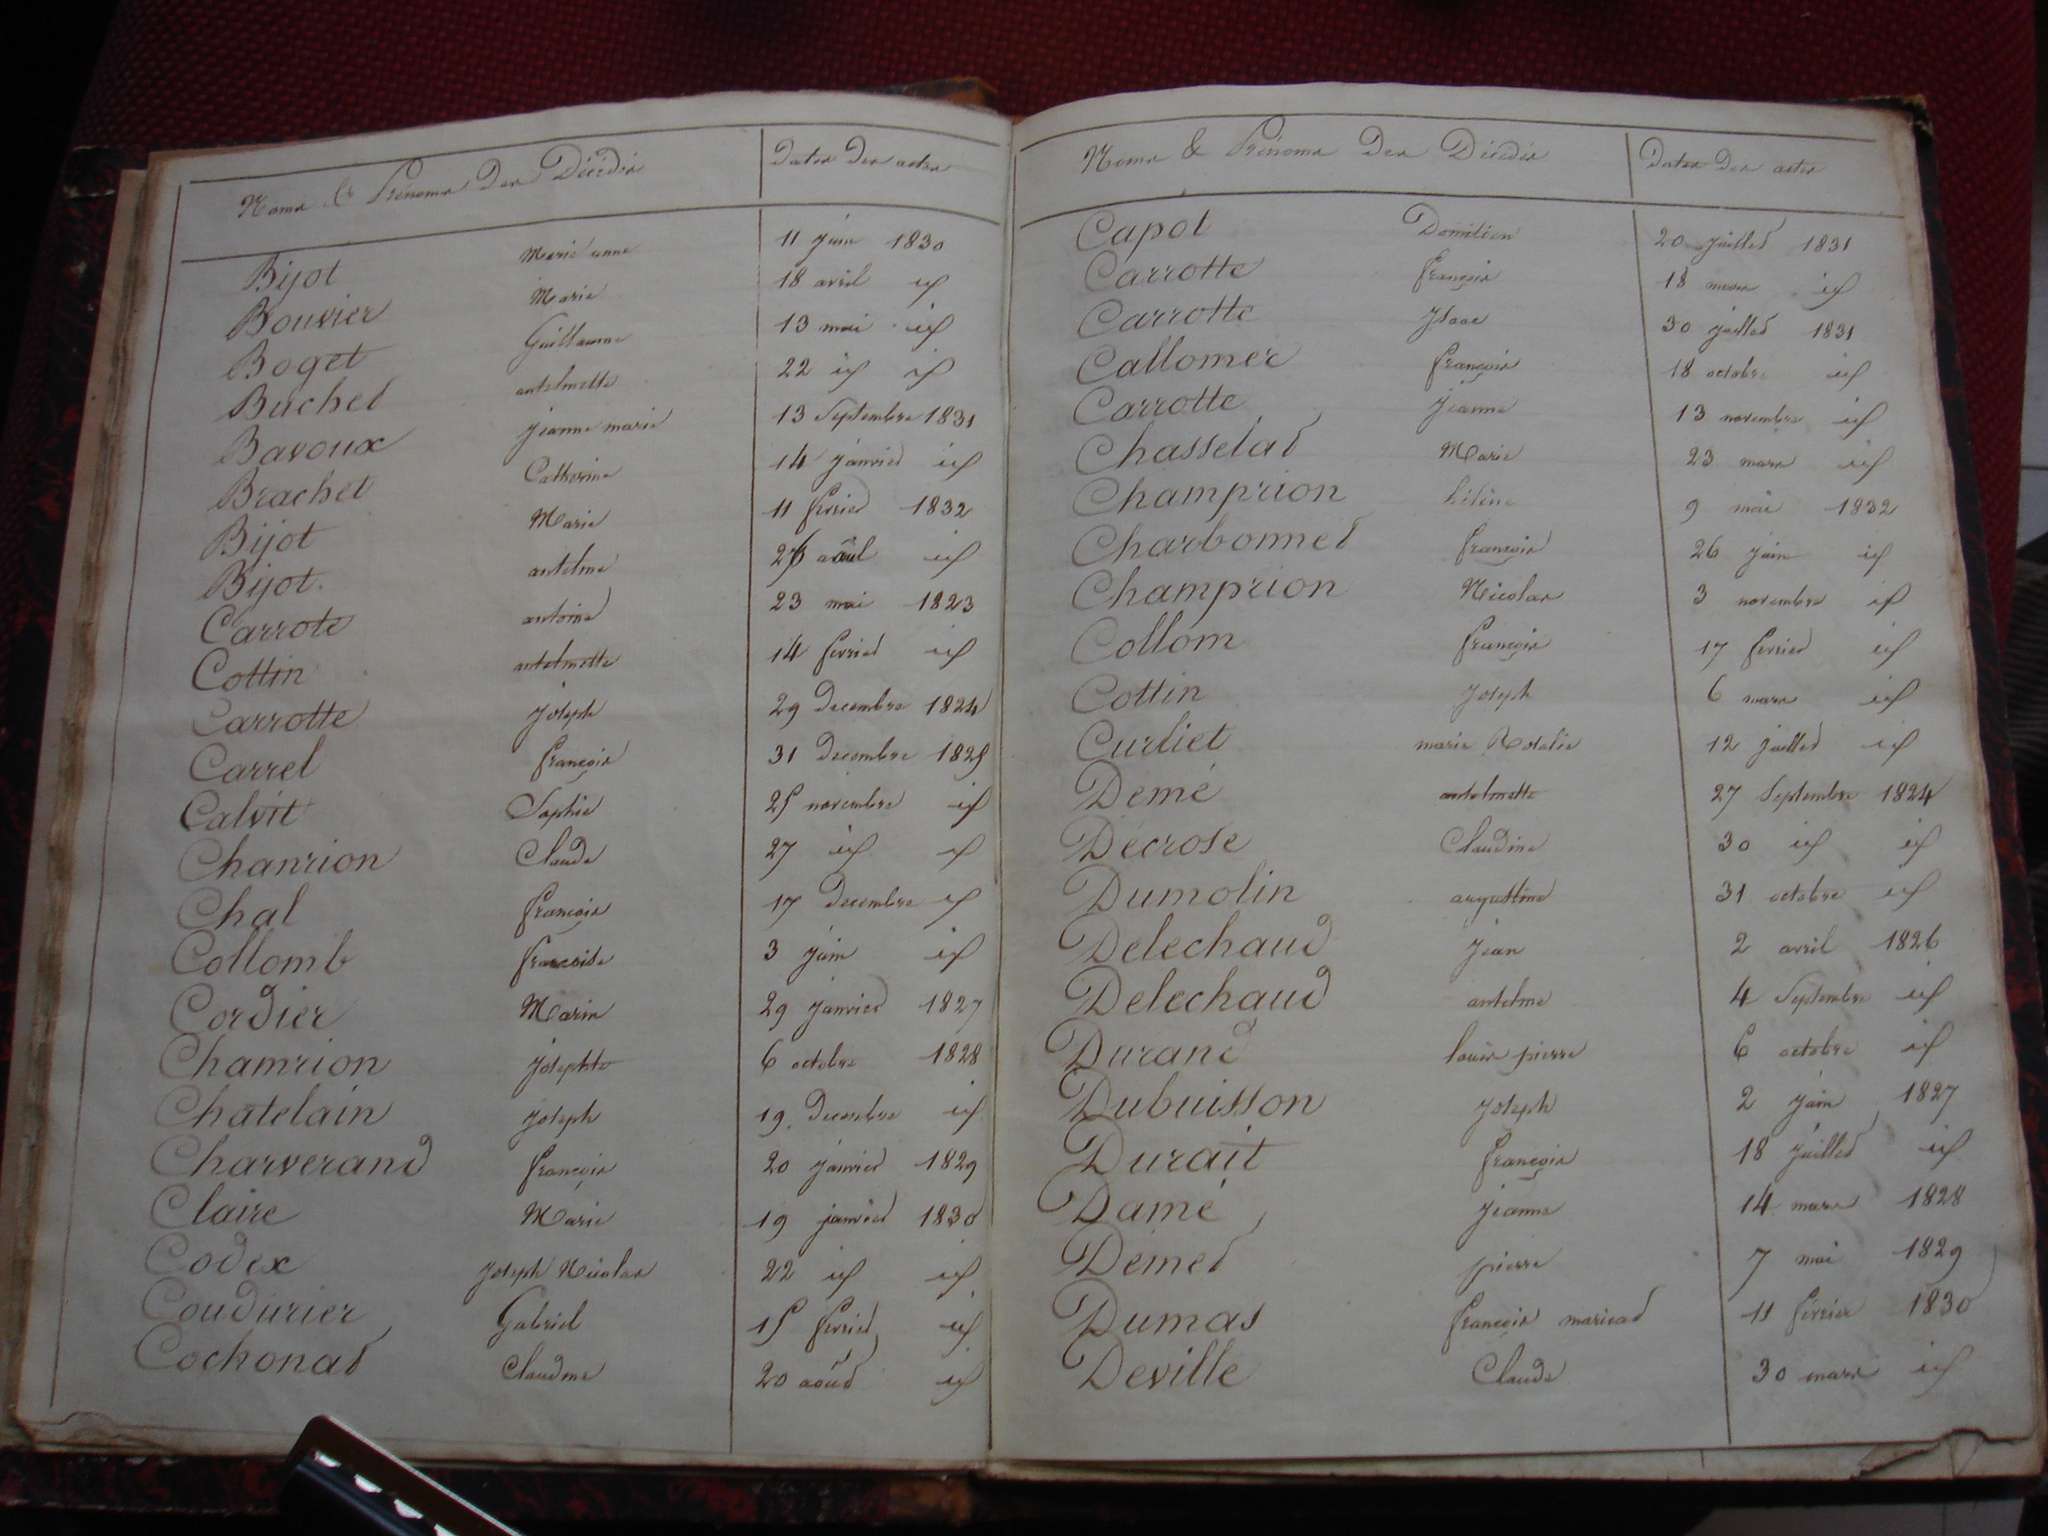 Noms & Prénoms Des Décédés Dates Des actes
Bijot Marie anne 11 juin 1830
Bouvier Marie 18 avril id
Boget Guillaume 13 mai id
Buchet antelmette 22 id id
Bavoux jeanne marie 13 Septembre 1831
Brachet Catherine 14 janvier id
Bijot Marie 11 fevrier 1832
Bijot. antelme août id
Carrote antoine 23 mai 1823
Cottin antelmette 14 février id
Carrotte joseph 29 decembre 1824
Carrel françois 31 decembre 1825
Calvit Sophie 25 novembre id
Chanrion Claude 27 id id
Chal françois 17 decembre id
Collomb francoise 3 juin id
Cordier Marin 29 janvier 1827
Chamrion josephte 6 octobre 1828
Chatelain joseph 19. Decembre id
Charverand françois 20 janvier 1829
Claire Marie 19 janvier 1830
Codex joseph Nicolas 22 id id
Coudurier Gabriel 15 fevrier id
Cochonat Claudine 20 août id
Noms & Prénoms Des Décédés Dates Des actes
Capot Domitien 20 juillet 1831
Carrotte françois 18 mars id
Carrotte Isaac 30 juillet 1831
Callomer françois 18 octobre id
Carrotte jeanne 13 novembre id
Chasselat Marie 23 mars id
Champrion hélène 9 mai 1832
Charbonnet françois 26 juin id
Champrion Nicolas 3 novembre id
Collom françois 17 fevrier id
Cottin joseph 6 mars id
Curliet marie Rosalie 12 juillet id
Demé antelmette 27 Septembre 1824
Décrose Claudine 30 id id
Dumolin augustine 31 octobre id
Delechaud jean 2 avril 1826
Delechaud antelme 4 Septembre id
Durand louis pierre 6 octobre id
Dubuisson joseph 2 juin 1827
Durait françois 18 juillet id
Damé jeanne 14 mars 1828
Démet pierre 7 mai 1829
Dumas françois mariead 11 février 1830
Deville Claude 30 mars id